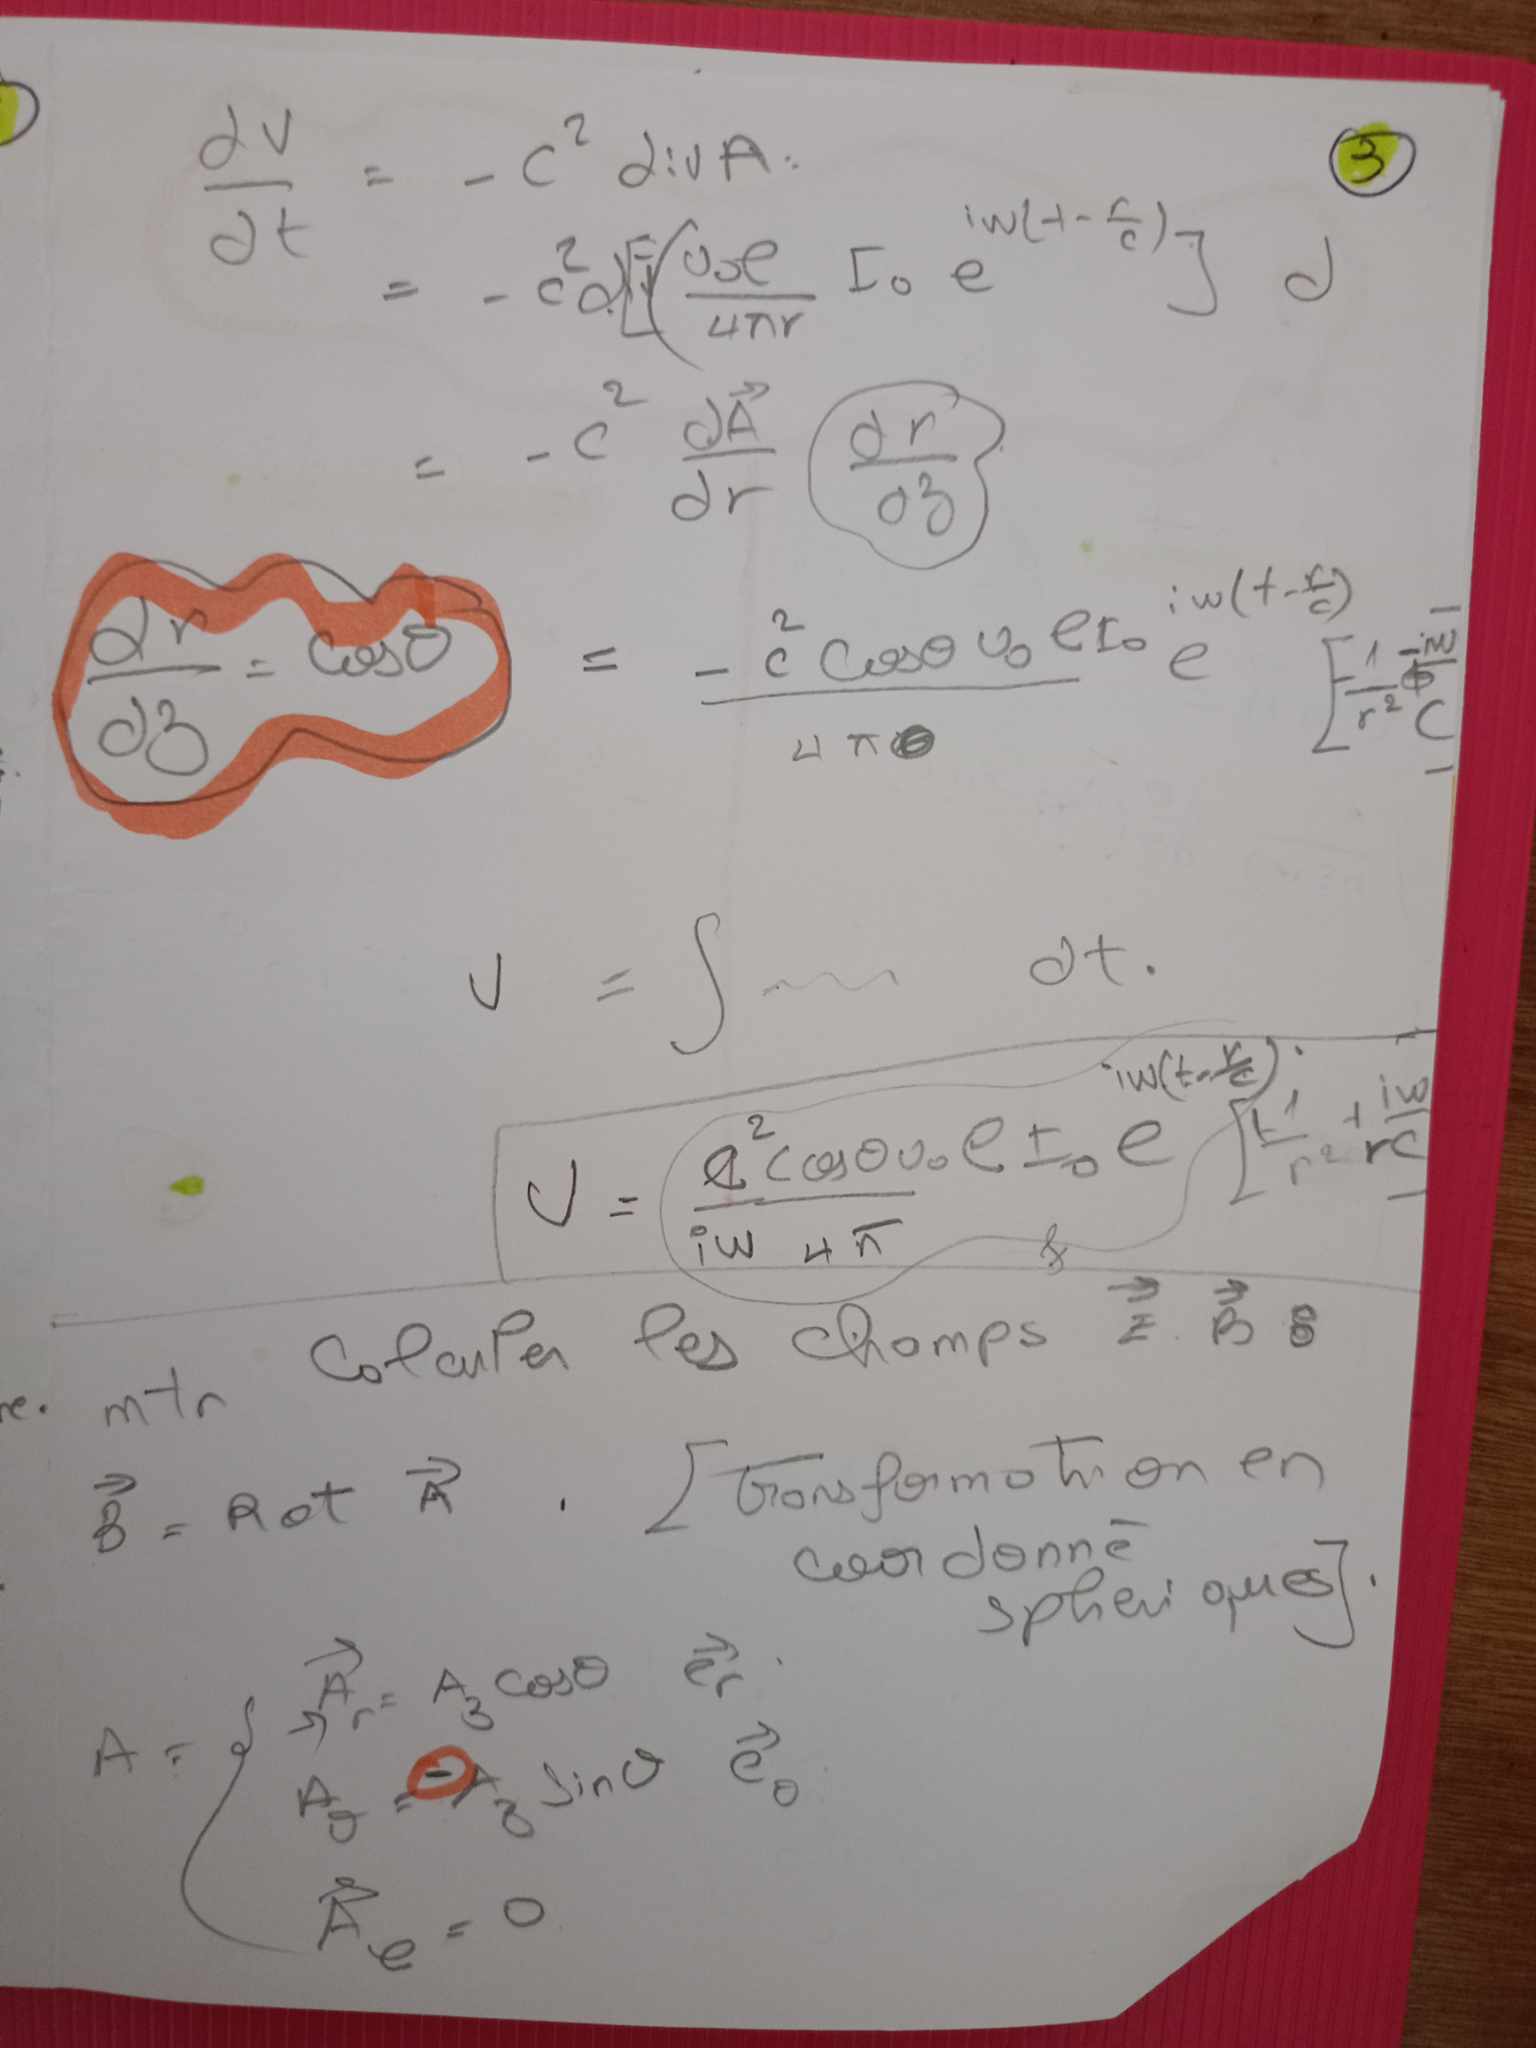 3
∂V/∂t = - c² div A.
= - c² d[(υ₀ℓ/4πr I₀ e^{iw(t-r/c)}] d
= - c² dA⃗/dr (dr/dz)
dr/dz = cosθ = - c² cosθ υ₀ ℓI₀/4π e^{iw(t-r/c)} [-1/r² - iw/C]
V = ∫ dt.
V = c² cosθ υ₀ ℓ I₀ e^{iw(t-r/c)}/iw 4π [+1/r² + iw/rC]
mtn Calculer les champs E⃗. B⃗ 8
B⃗ = Rot A⃗ . [transformation en
coordonné
spheriques].
A = { A⃗r = Az cosθ e⃗r.
A⃗θ = -Az sinθ e⃗θ
A⃗e = 0